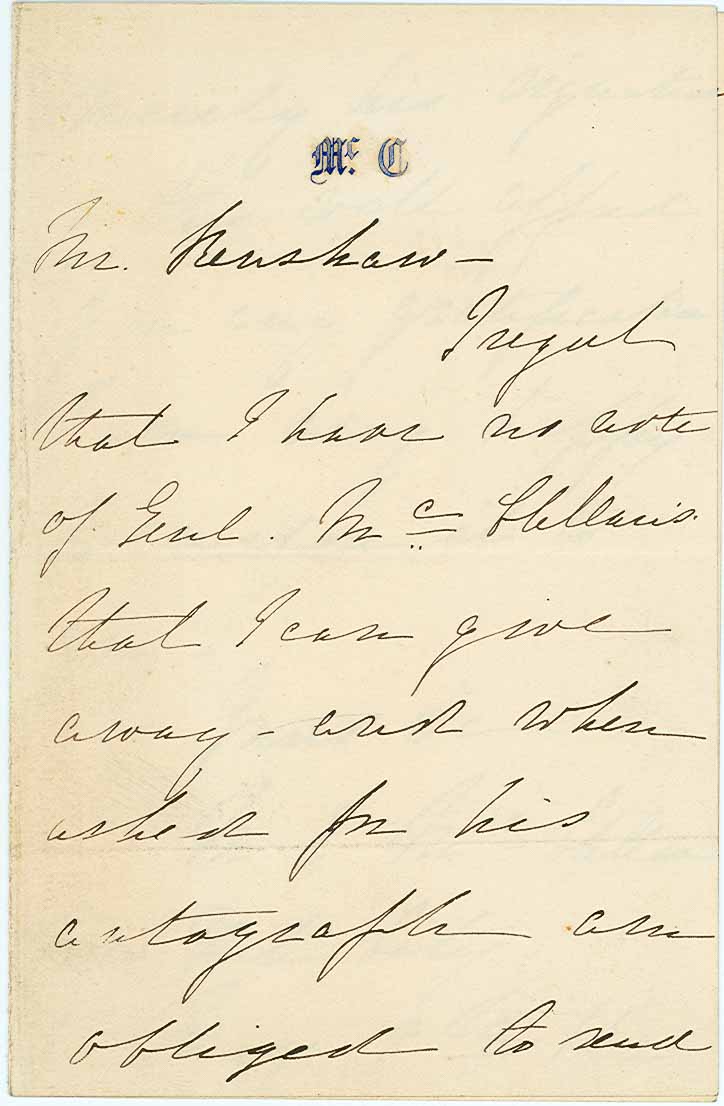 Mc. C
Mr. Renshaw—
I regret
that I have no note
of Genl. Mc Clellan's
that I can give
away - and when
asked for his
autograph am
obliged to send